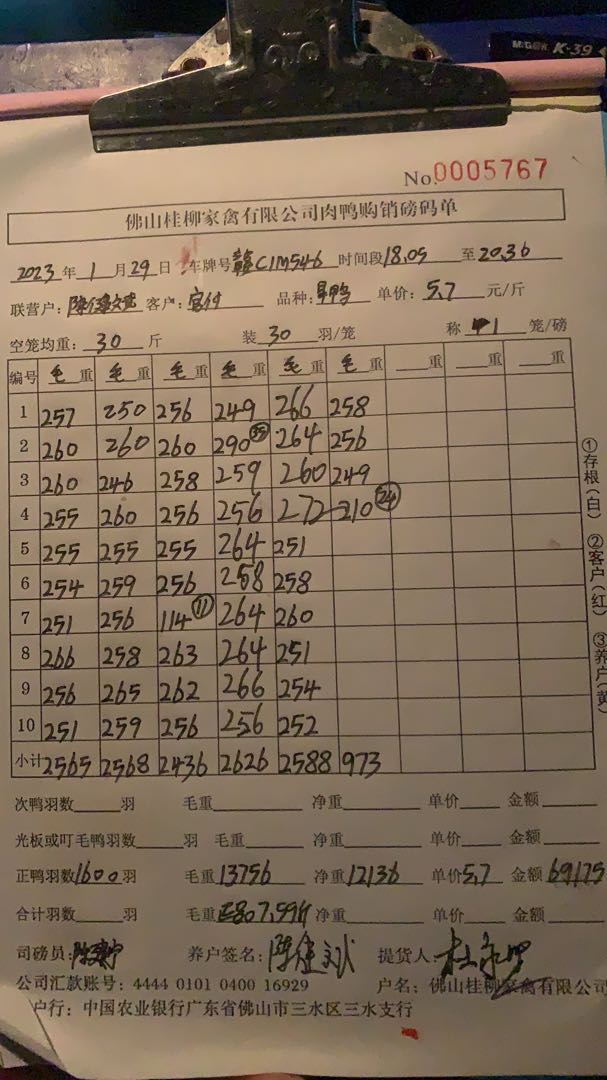 MiGER K-39
No.0005767
佛山桂柳家禽有限公司肉鸭购销磅码单
2023年1月29日 车牌号赣C1M546 时间段18.05至20.36
联营户：陈健文 客户：宫付 品种：旱鸭 单价：5.7元/斤
空笼均重：30斤 装30羽/笼 称1笼/磅
编号 毛重 毛重 毛重 毛重 毛重 毛重 重 重 重
1 257 250 256 249 266 258
2 260 260 260 290㉟ 264 256
3 260 246 258 259 260 249
4 255 260 256 256 272 210㉔
5 255 255 255 264 251
6 254 259 256 258 258
7 251 256 114⑪ 264 260
8 266 258 263 264 251
9 256 265 262 266 254
10 251 259 256 256 252
小计 2565 2568 2436 2626 2588 973
次鸭羽数 羽 毛重 净重 单价 金额
光板或叮毛鸭羽数 羽 毛重 净重 单价 金额
正鸭羽数1600羽 毛重13756 净重12136 单价5.7 金额69175
合计羽数 羽 毛重 7.59斤 净重 单价 金额
司磅员： 养户签名：陈健文 提货人：
公司汇款账号：4444 0101 0400 16929 户名：佛山桂柳家禽有限公司
户行：中国农业银行广东省佛山市三水区三水支行
①存根（白） ②客户（红） ③养户（黄）